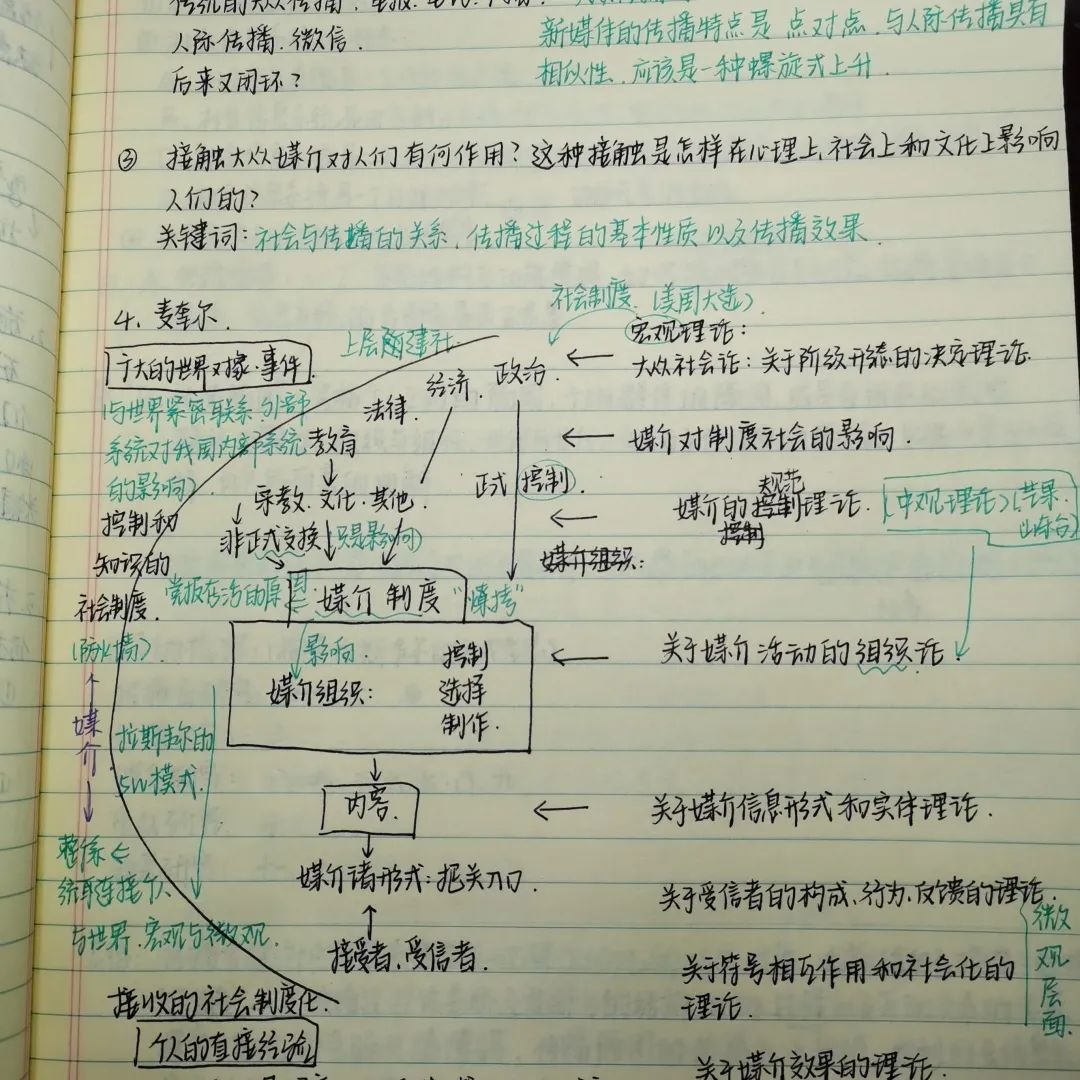 人际传播.微信.
后来又闭环?
新媒体的传播特点是 点对点.与人际传播具有
相似性.应该是一种螺旋式上升.
③ 接触大众媒介对人们有何作用?这种接触是怎样在心理上、社会上和文化上影响
人们的?
关键词:社会与传播的关系.传播过程的基本性质以及传播效果.
社会制度.(美国大选)
4、麦奎尔.
宏观理论:
广大的世界对象.事件
上层
经济.政治.
大众社会论:关于阶级形态的决定理论.
(与世界紧密联系.外部
系统对我国内部系统
的影响)
法律.
教育
媒介对制度社会的影响.
宗教.文化.其他
正式 控制.
规范
媒介的控制理论.
控制
(中观理论)(芒果.
山东台)
控制和
知识的
社会制度.
(防火墙).
非正式交换
(只是影响)
媒介组织:
党报存活的原因
媒介制度
影响.
媒介组织:
控制
选择
制作.
关于媒介活动的组织论.
媒介
拉斯韦尔的
5W模式.
内容.
关于媒介信息形式和实体理论.
媒介诸形式:把关入口.
与世界.宏观与微观.
关于受信者的构成、行为、反馈的理论.
接受者、受信者.
关于符号相互作用和社会化的
理论.
微观层面.
接收的社会制度化
个人的直接经验
关于媒介效果的理论.